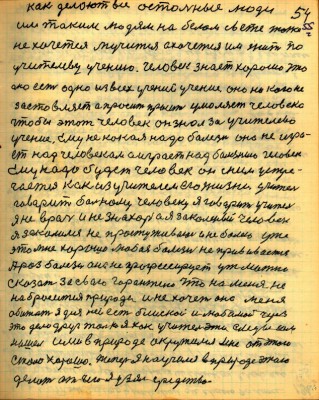 как делают все остальные люди
54
55
им таким людям на белом свете тоже
не хочется мучится а хочется им жить по
учителеву учению. Человек знает хорошо это
оно есть одно из всех учений учение оно ни кого не
заставляет а просит прямо умоляет человека
чтобы этот человек он знал за учителево
учение. Ему не какая надо болезнь она не игра
ет над человеком а играет над болезнию человек
Ему надо будет человек он с ним встре
чается как из учителем его жизни. Учитель
говорит больному человеку я говорит учитель
я не врач и не знахарь а я закаленый человек
Я закалился не простуживаюсь и не болею уже
это мне хорошо любая болезнь не прививается
А раз болезнь она не прогрессирует уже можно
сказать за свою гарантию Это на меня не
набросится природа и не хочет она меня
обижать я для неё есть близкий и любимый через
это дело друг только я как учитель эти следы сам
нашел и ими в природе окружил мне от этого
стало хорошо. Теперь я научился в природе этого
делать от чего я взял средство.